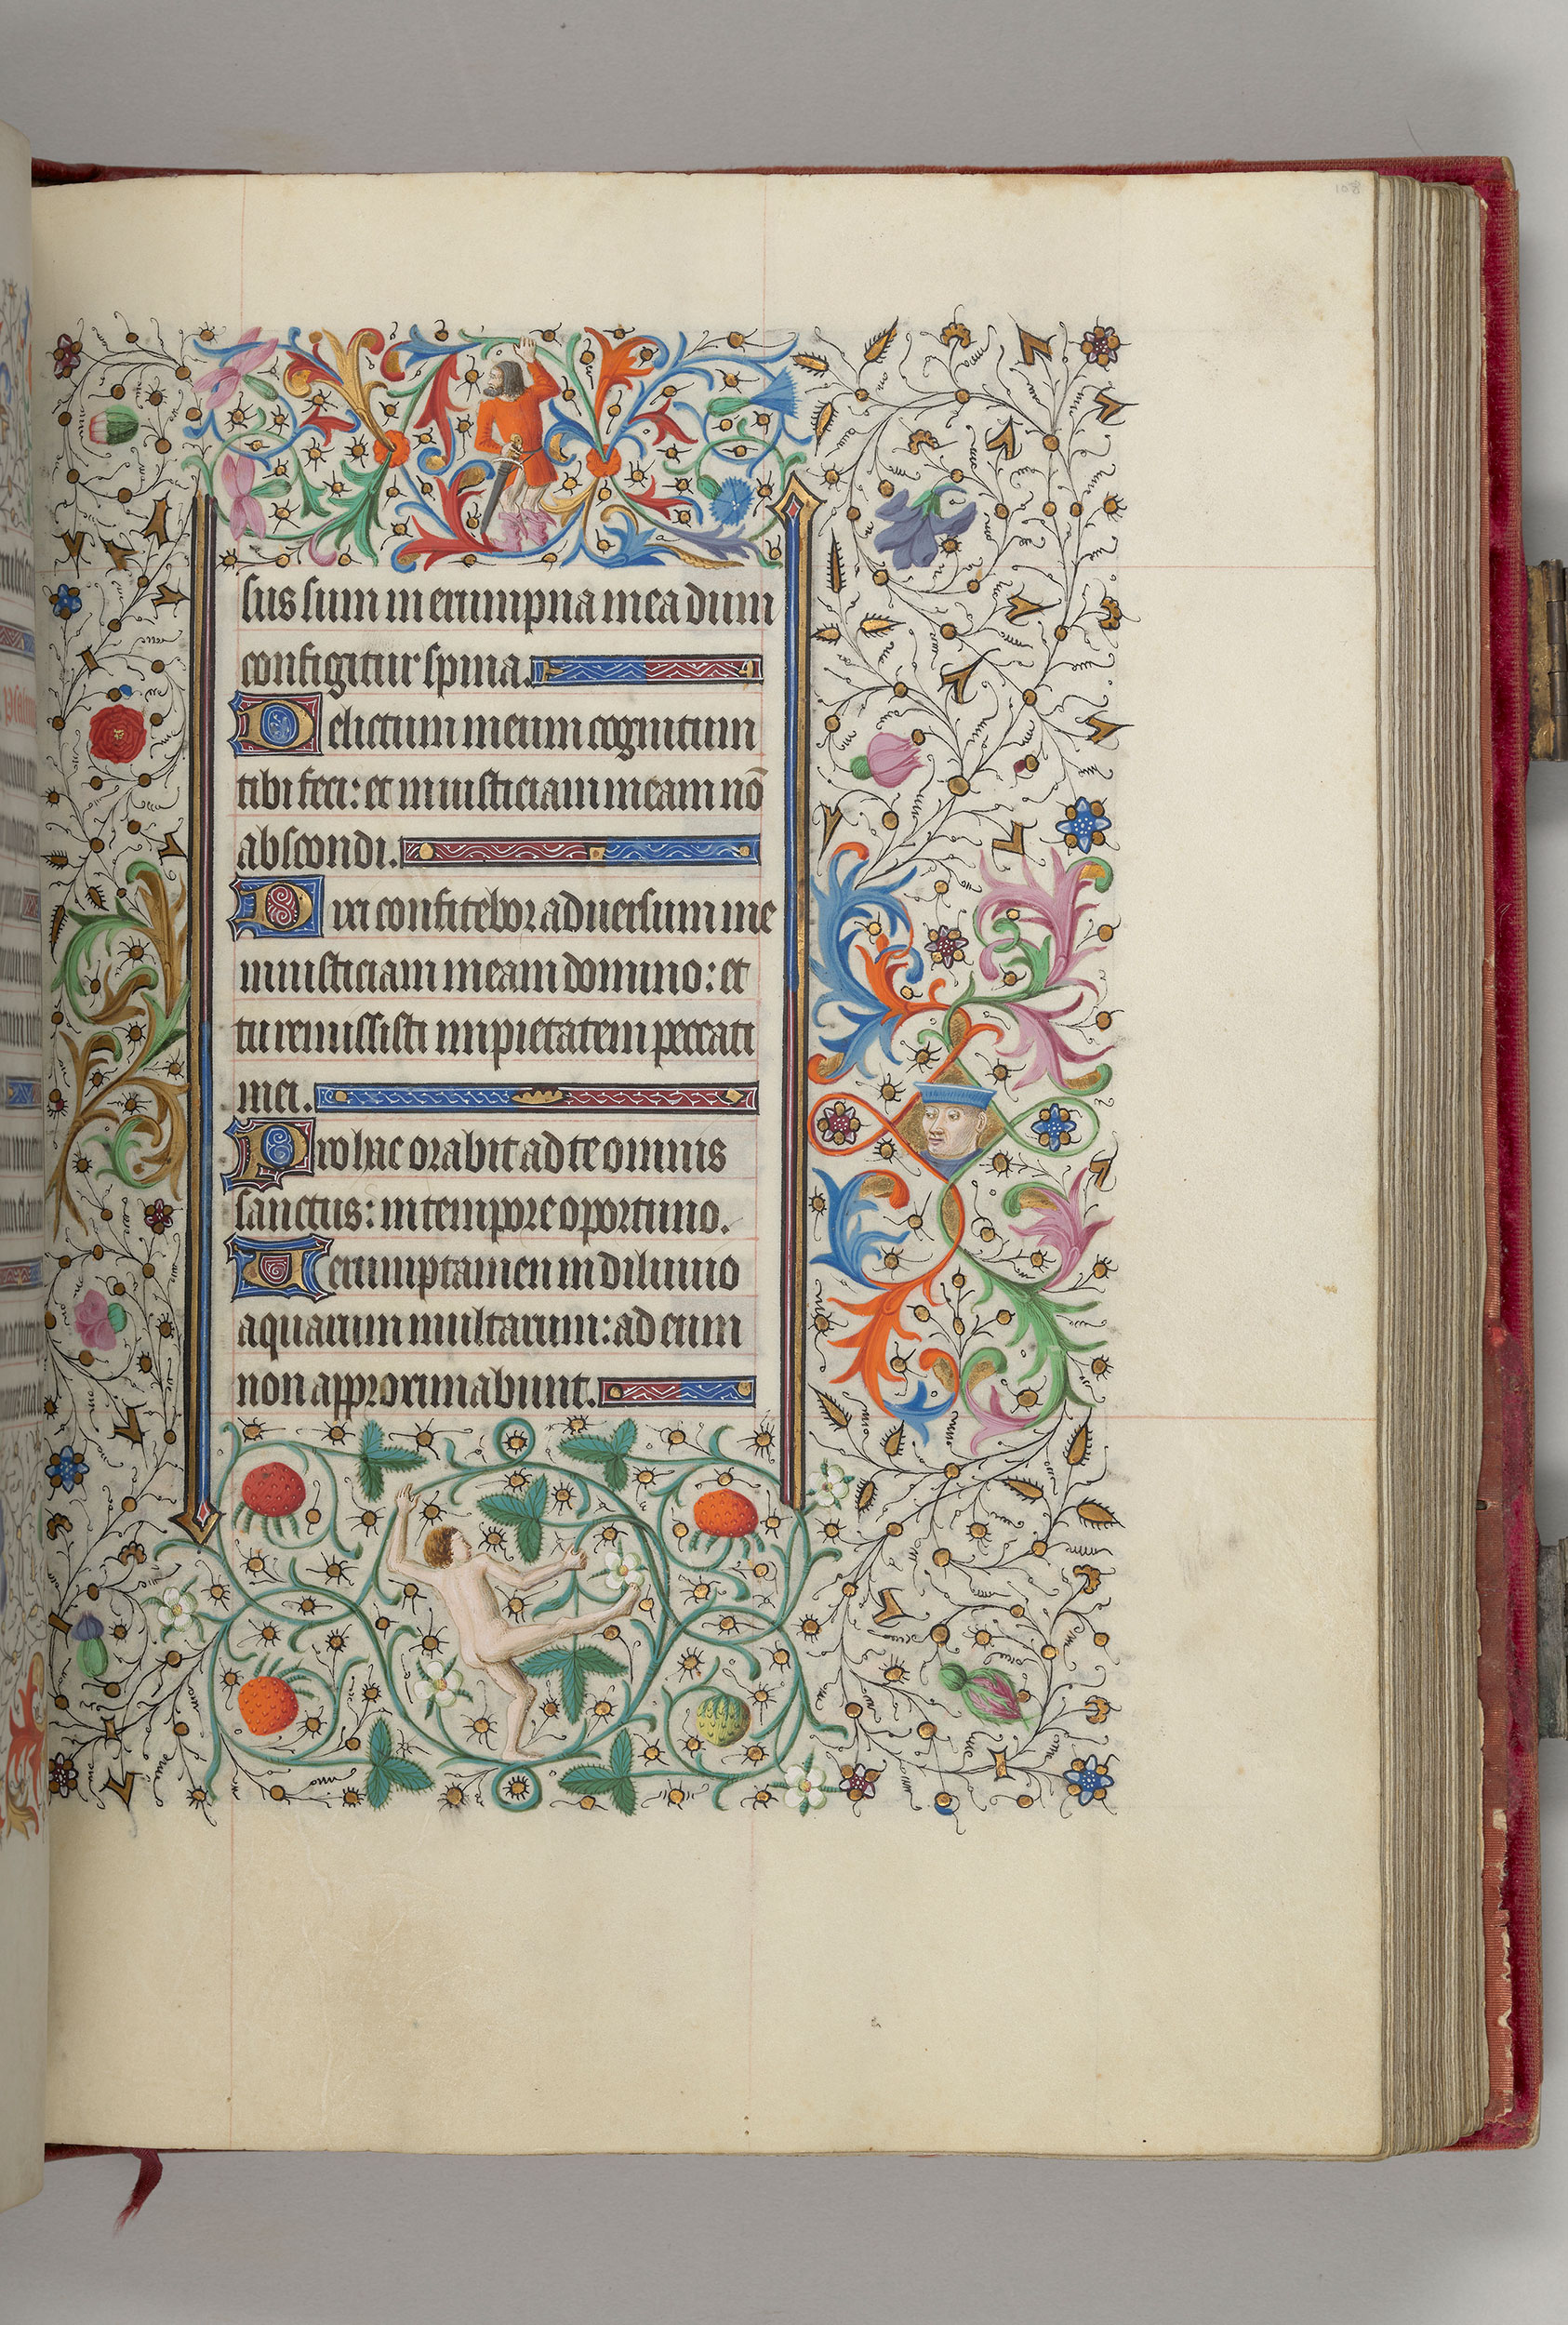 108
sus sum in erumpna mea dum
configitur spina.
Delictum meum cognitum
tibi feci: et iniusticiam meam nō
abscondi.
Dixi confitebor aduersum me
iniusticiam meam domino: et
tu remissisti impietatem peccati
mei.
Pro hac orabit ad te omnis
sanctus: in tempore oportuno.
Uerumptamen in diluuio
aquarum multarum: ad eum
non approximabunt.